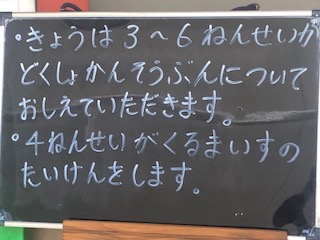 •きょうは3～6ねんせいが
どくしょかんそうぶんについて
おしえていただきます。
•4ねんせいがくるまいすの
たいけんをします。